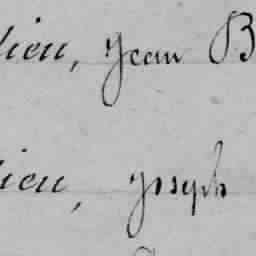 lieu, Jean B
lieu, Joseph